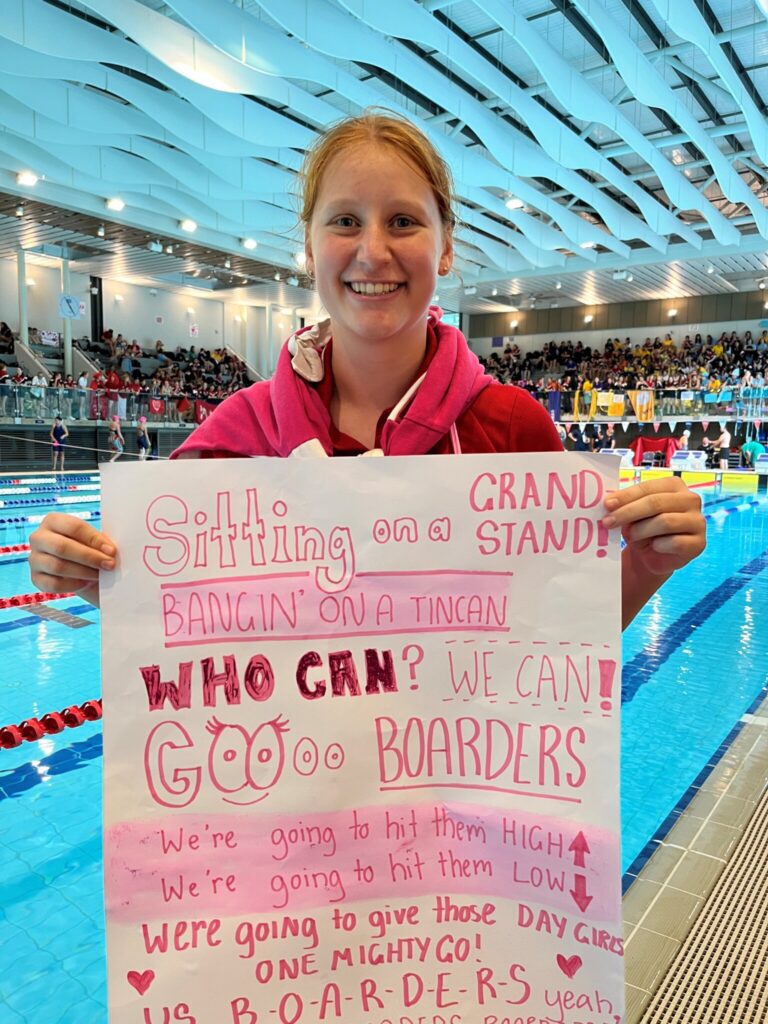 Sitting on a GRAND-
STAND!
BANGIN' ON A TINCAN
WHO CAN? WE CAN!
GOOoo BOARDERS
We're going to hit them HIGH
We're going to hit them LOW
Were going to give those DAY GIRLS
ONE MIGHTY GO!
US B-O-A-R-D-E-R-S yeah